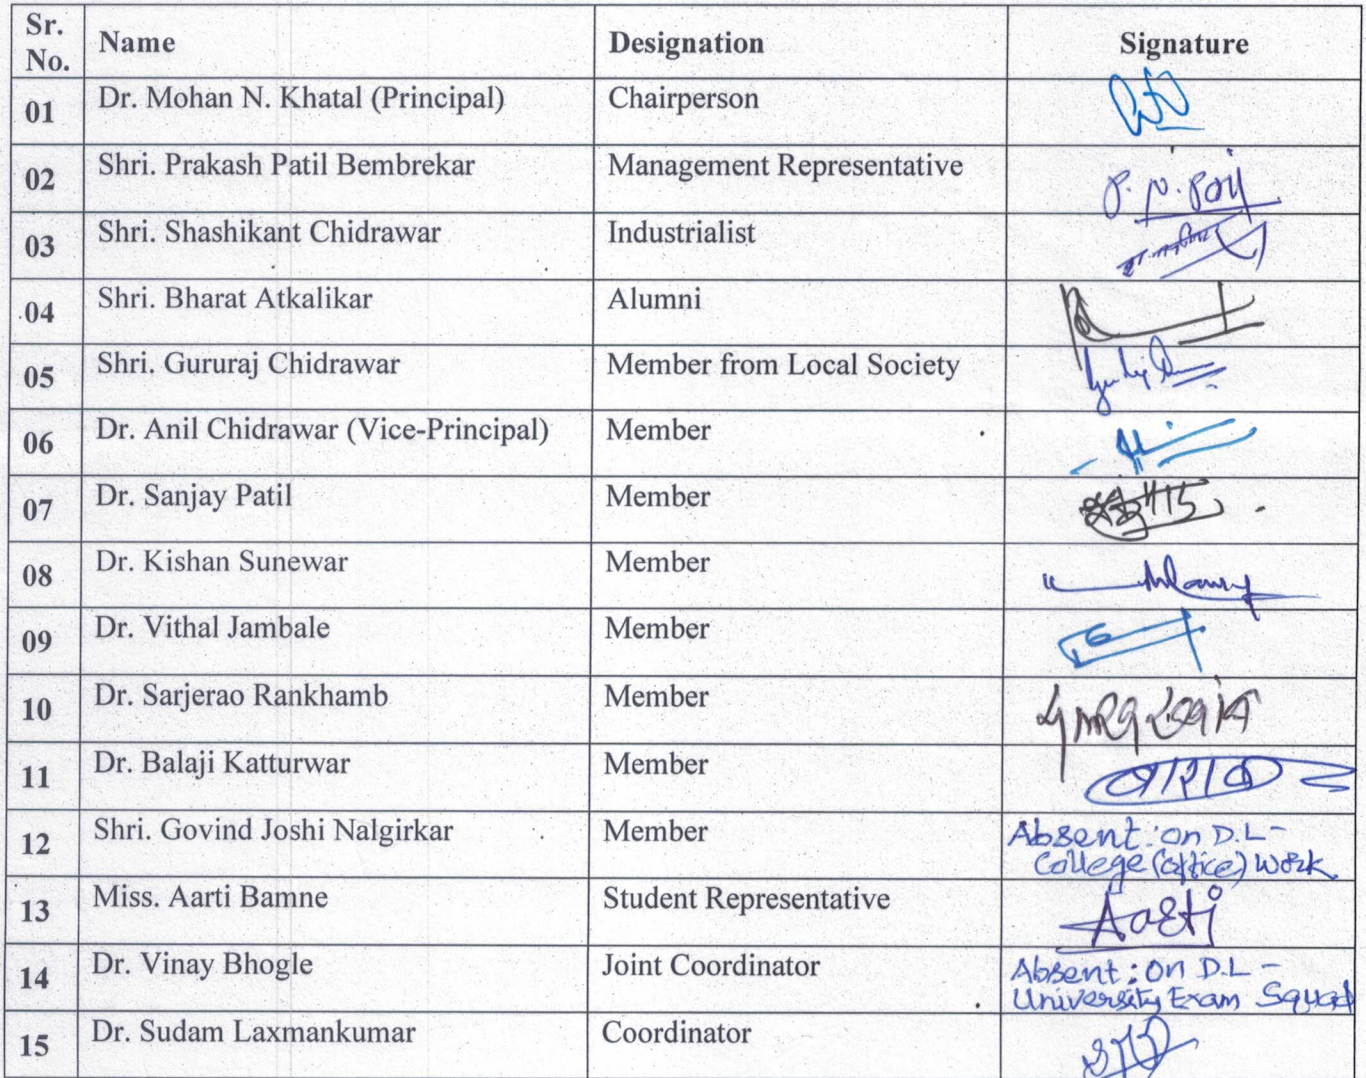 Sr. No. Name Designation Signature
01 Dr. Mohan N. Khatal (Principal) Chairperson
02 Shri. Prakash Patil Bembrekar Management Representative P. N. Patil
03 Shri. Shashikant Chidrawar Industrialist
04 Shri. Bharat Atkalikar Alumni
05 Shri. Gururaj Chidrawar Member from Local Society
06 Dr. Anil Chidrawar (Vice-Principal) Member
07 Dr. Sanjay Patil Member
08 Dr. Kishan Sunewar Member
09 Dr. Vithal Jambale Member
10 Dr. Sarjerao Rankhamb Member
11 Dr. Balaji Katturwar Member
12 Shri. Govind Joshi Nalgirkar Member Absent : on D.L -
College (office) work
13 Miss. Aarti Bamne Student Representative Aarti
14 Dr. Vinay Bhogle Joint Coordinator Absent : on D.L -
University Exam Squad
15 Dr. Sudam Laxmankumar Coordinator